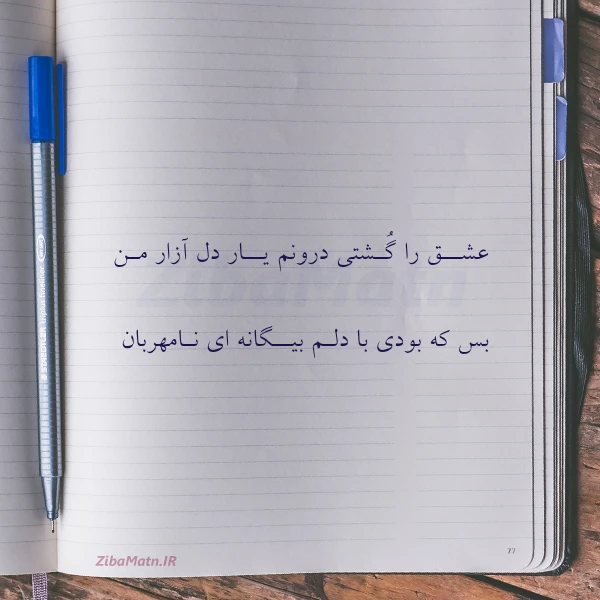 عشق را گُشتی درونم یار دل آزار من
بس که بودی با دلم بیگانه ای نامهربان
77
ZibaMatn.IR